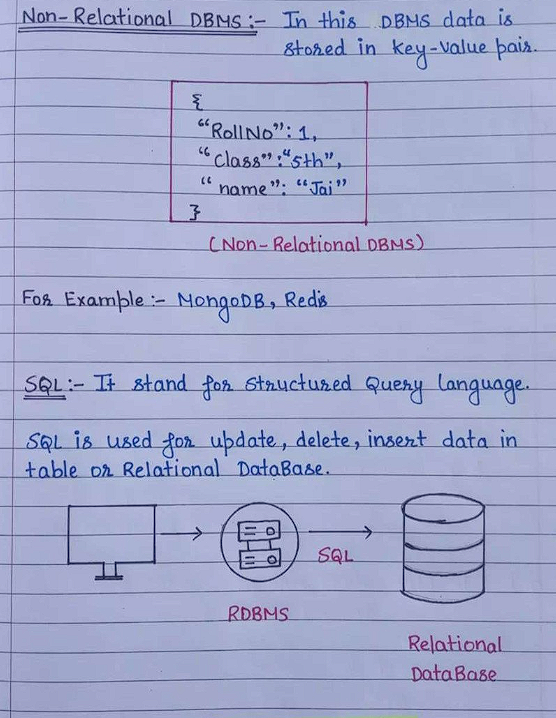 Non-Relational DBMS :- In this DBMS data is
stored in key-value pair.
{
"RollNo": 1,
"class": "5th",
"name": "Jai"
}
(Non-Relational DBMS)
For Example :- MongoDB, Redis
SQL :- It stand for Structured Query language.
SQL is used for update, delete, insert data in
table or Relational DataBase.
SQL
RDBMS
Relational
DataBase